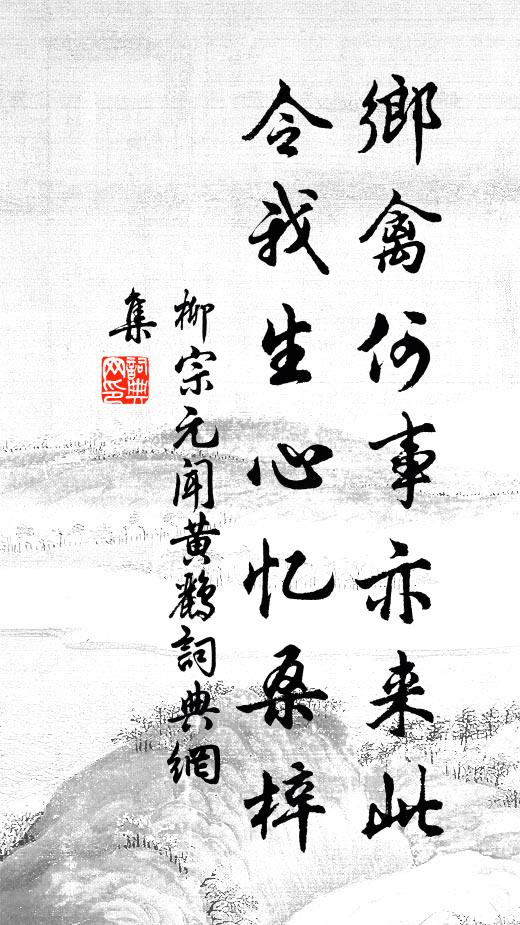 鄉禽何事亦来此
令我生心忆桑梓
柳宗元闻黄鹂詞典網
集
詞典
网印